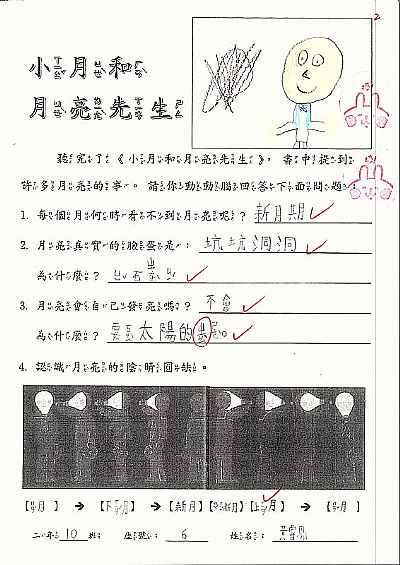 小月和
月亮先生
聽完了《小月和月亮先生》，書中提到
許多月亮的事。請你動動腦回答下面問題：
1. 每個月何時看不到月亮呢？新月期
2. 月亮真實的臉蛋是：坑坑洞洞
為什麼？
3. 月亮會自己發亮嗎？不會
為什麼？太陽的
4. 認識月亮的陰晴圓缺。
【月】→【下月】→【新月】【月】【上月】→【月】
二年10班 座號：6 姓名：